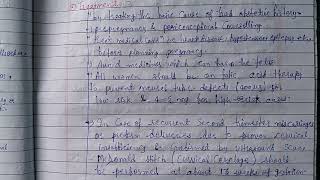 Treatment
by treating the basic cause of bad obstetric history
prepregnancy & periconceptional counselling
medical cause like heart disease, hypertension epilepsy etc.
before planning pregnancy
Avoid medicines which can harm the fetus
All women should be on folic acid therapy
to prevent neural tube defects (400 µg for
low risk & 4 mg for high risk areas
In Case of recurrent Second trimester miscarriages
or preterm deliveries due to proven cervical
insufficiency is confirmed by ultrasound scan
McDonald stitch (Cervical Cerclage) should
be performed at about 13 weeks of gestation